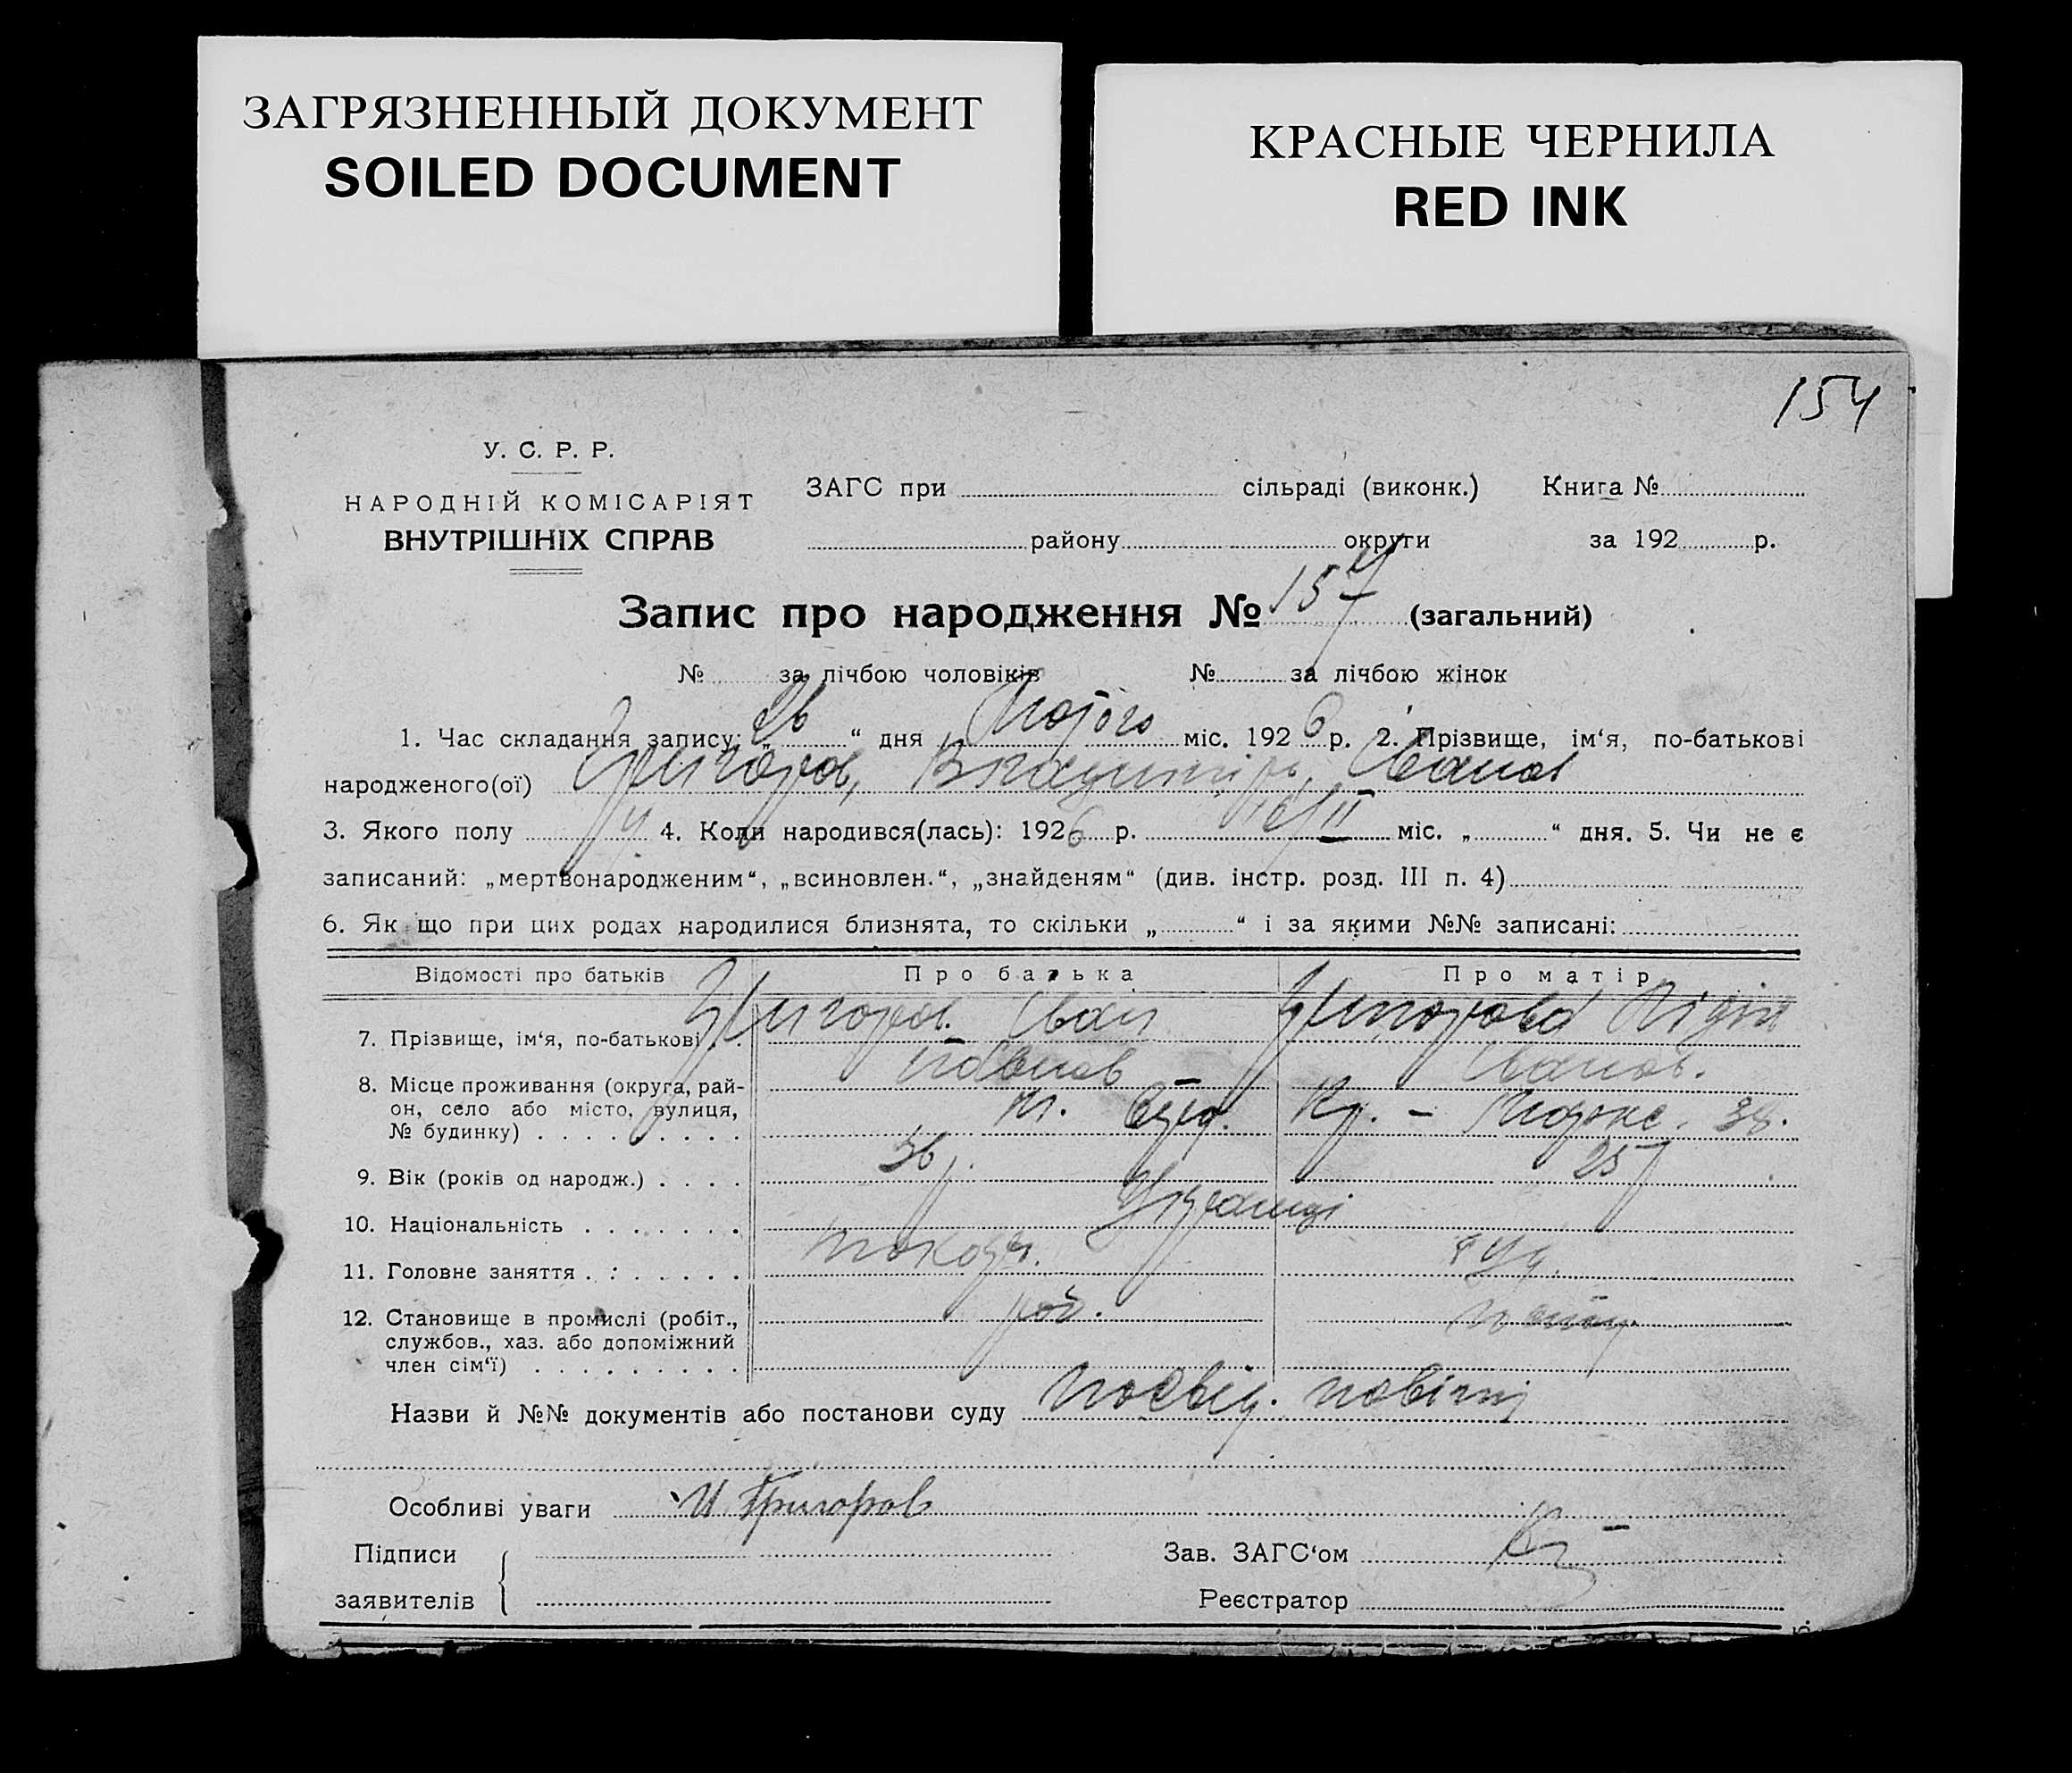 ЗАГРЯЗНЕННЫЙ ДОКУМЕНТ
SOILED DOCUMENT
КРАСНЫЕ ЧЕРНИЛА
RED INK
154
У. С. Р. Р.
НАРОДНІЙ КОМІСАРІЯТ
ВНУТРІШНІХ СПРАВ
ЗАГС при сільраді (виконк.) Книга №
району округи за 192 р.
Запис про народження № 154 (загальний)
№ за лічбою чоловіків № за лічбою жінок
1. Час складання запису: „26“ дня міс. 1926 р. 2. Прізвище, ім‘я, по-батькові
народженого(ої) Григоров, Владимір, Иванов
3. Якого полу ч 4. Коли народився(лась): 1926 р. міс. „ “ дня. 5. Чи не є
записаний: „мертвонародженим“, „всиновлен.“, „знайденям“ (див. інстр. розд. III п. 4)
6. Як що при цих родах народилися близнята, то скільки „ “ і за якими №№ записані:
Відомості про батьків Про батька Про матір
7. Прізвище, ім‘я, по-батькові Григоров Иван Григорова Лідія
Иванов.
8. Місце проживання (округа, рай-
он, село або місто, вулиця,
№ будинку) 38.
9. Вік (років од народж.) 36 р. 25 р
10. Національність Українці
11. Головне заняття токарь.
12. Становище в промислі (робіт., роб.
службов., хаз. або допоміжний
член сім‘ї)
Назви й №№ документів або постанови суду Посвід.
Особливі уваги И Григоров
Підписи
заявителів
Зав. ЗАГС‘ом
Реєстратор